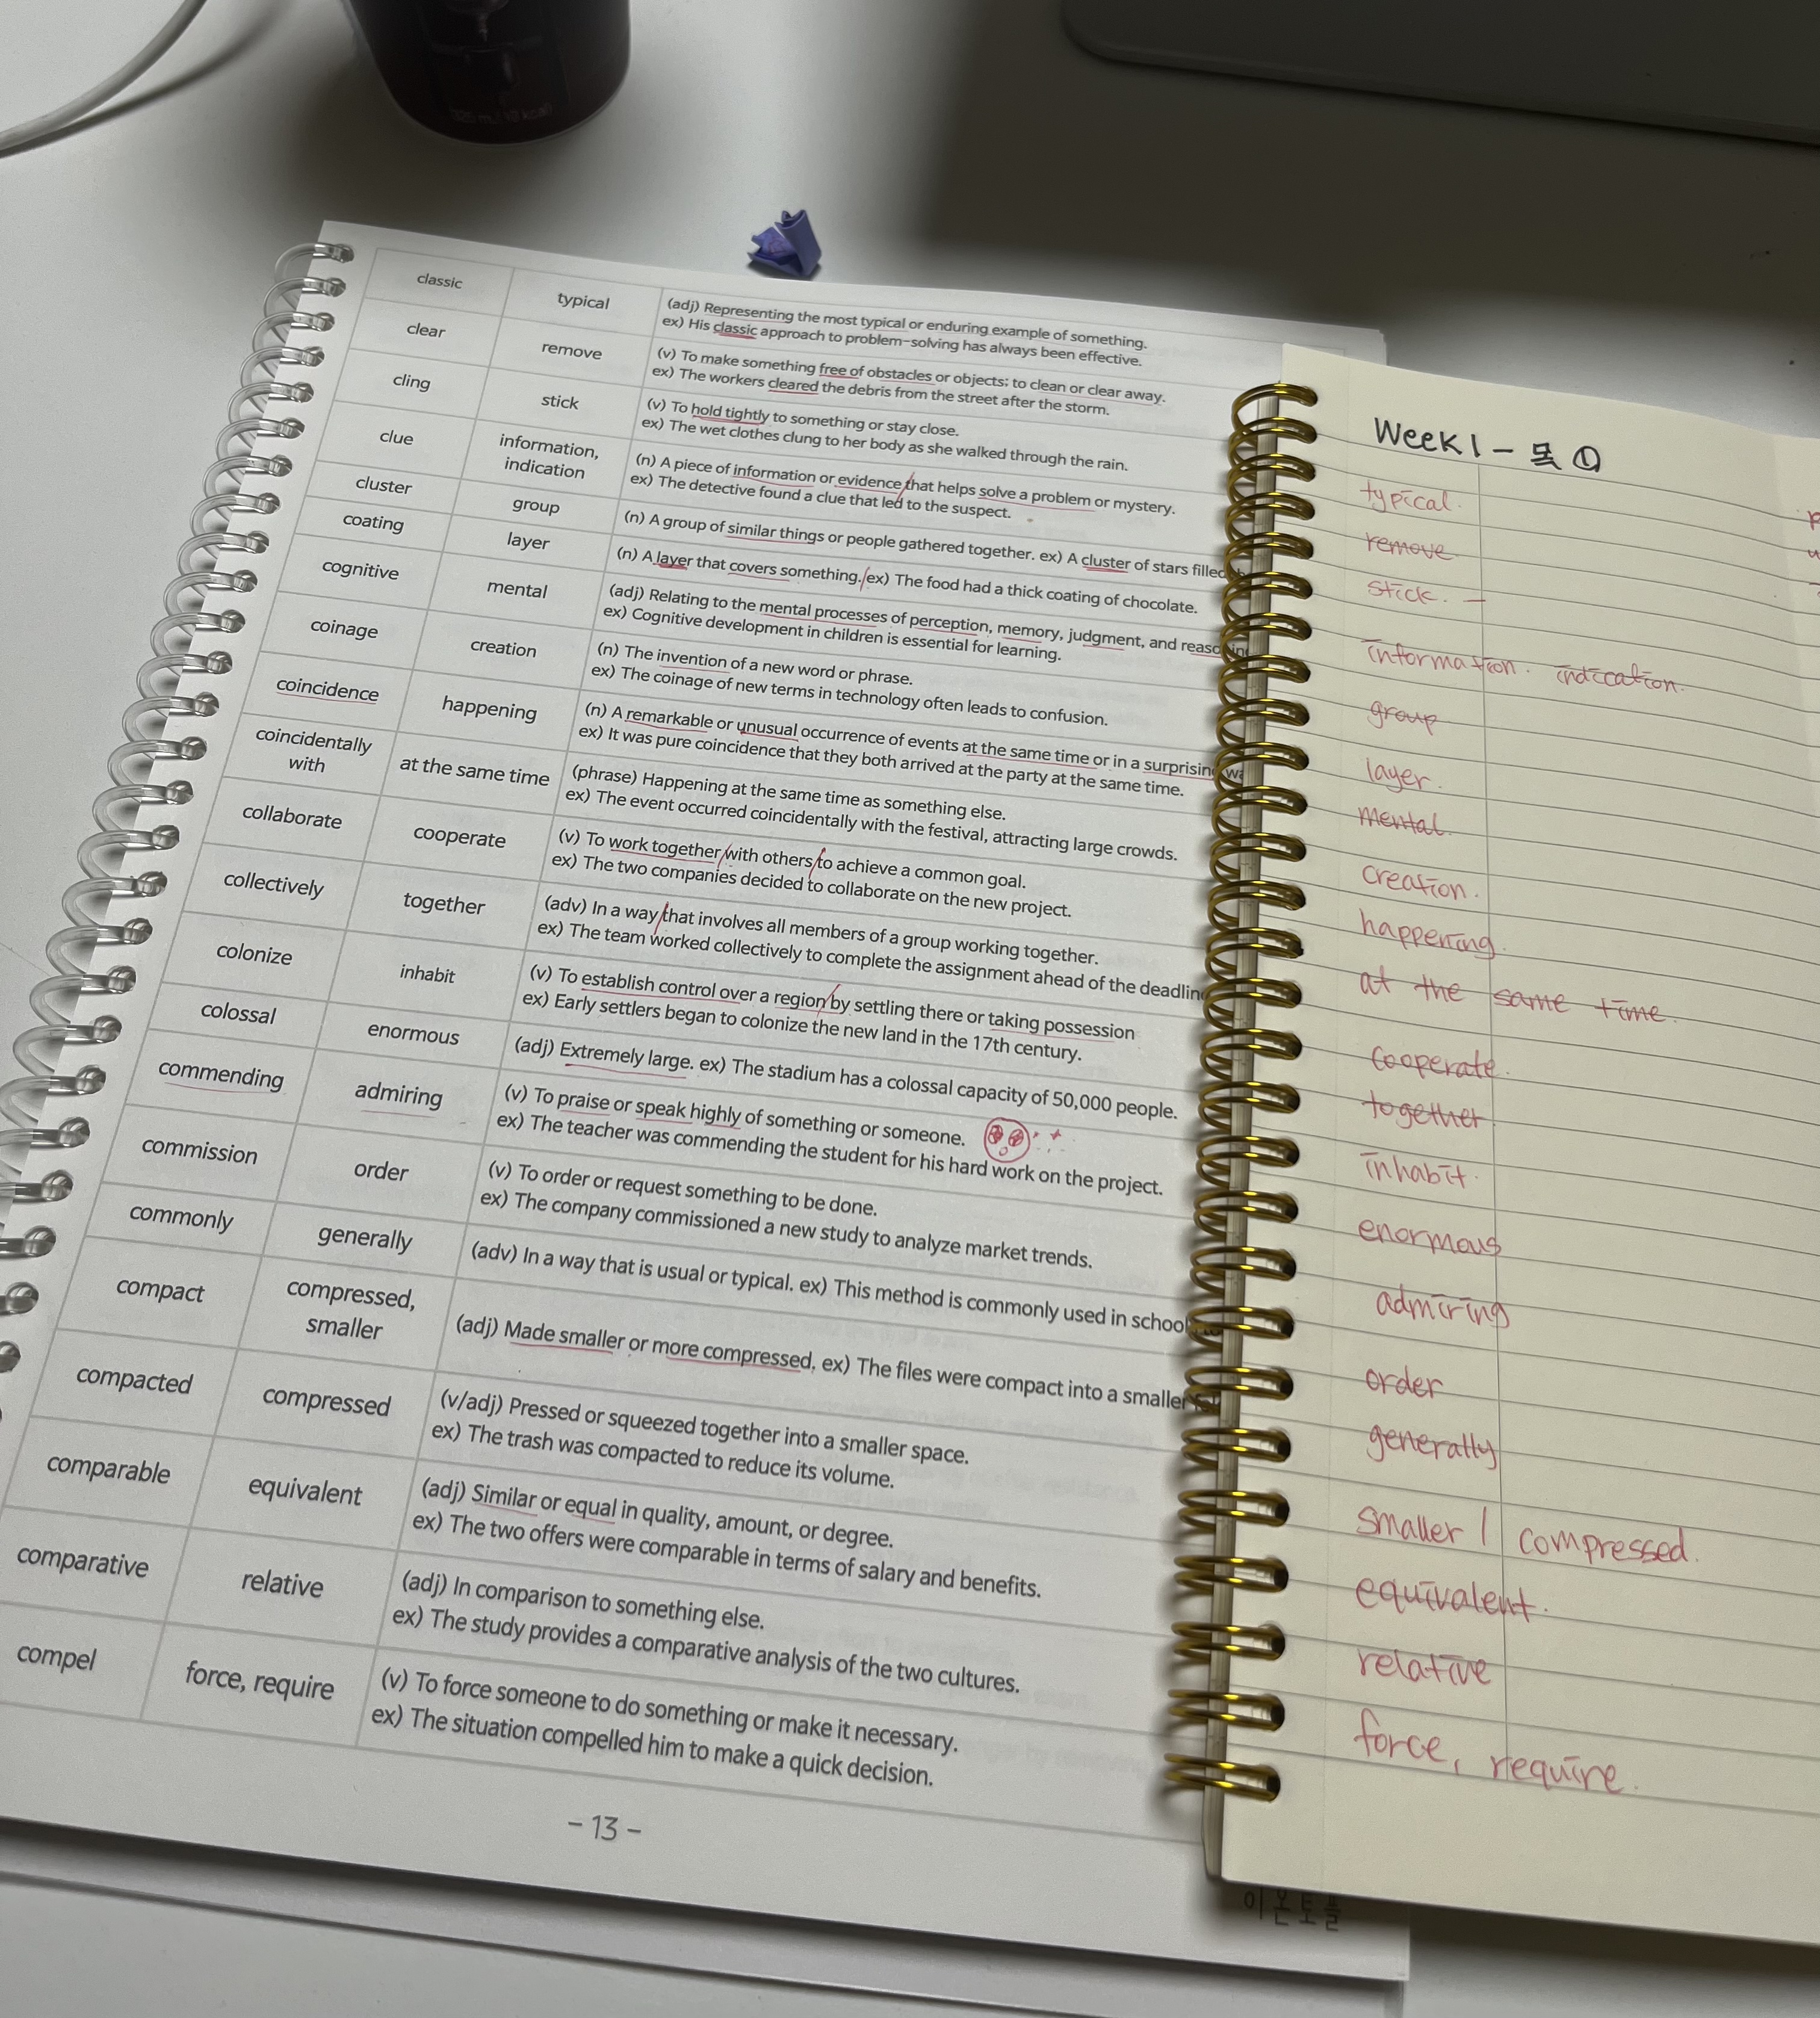 classic
typical
(adj) Representing the most typical or enduring example of something.
ex) His classic approach to problem-solving has always been effective.
clear
remove
(v) To make something free of obstacles or objects; to clean or clear away.
ex) The workers cleared the debris from the street after the storm.
cling
stick
(v) To hold tightly to something or stay close.
ex) The wet clothes clung to her body as she walked through the rain.
clue
information,
indication
(n) A piece of information or evidence that helps solve a problem or mystery.
ex) The detective found a clue that led to the suspect.
cluster
group
(n) A group of similar things or people gathered together. ex) A cluster of stars filled
coating
layer
(n) A layer that covers something. ex) The food had a thick coating of chocolate.
cognitive
mental
(adj) Relating to the mental processes of perception, memory, judgment, and reasoning
ex) Cognitive development in children is essential for learning.
coinage
creation
(n) The invention of a new word or phrase.
ex) The coinage of new terms in technology often leads to confusion.
coincidence
happening
(n) A remarkable or unusual occurrence of events at the same time or in a surprising wa
ex) It was pure coincidence that they both arrived at the party at the same time.
coincidentally
with
at the same time
(phrase) Happening at the same time as something else.
ex) The event occurred coincidentally with the festival, attracting large crowds.
collaborate
cooperate
(v) To work together with others to achieve a common goal.
ex) The two companies decided to collaborate on the new project.
collectively
together
(adv) In a way that involves all members of a group working together.
ex) The team worked collectively to complete the assignment ahead of the deadlin
colonize
inhabit
(v) To establish control over a region by settling there or taking possession
ex) Early settlers began to colonize the new land in the 17th century.
colossal
enormous
(adj) Extremely large. ex) The stadium has a colossal capacity of 50,000 people.
commending
admiring
(v) To praise or speak highly of something or someone.
ex) The teacher was commending the student for his hard work on the project.
commission
order
(v) To order or request something to be done.
ex) The company commissioned a new study to analyze market trends.
commonly
generally
(adv) In a way that is usual or typical. ex) This method is commonly used in school
compact
compressed,
smaller
(adj) Made smaller or more compressed. ex) The files were compact into a smaller
compacted
compressed
(v/adj) Pressed or squeezed together into a smaller space.
ex) The trash was compacted to reduce its volume.
comparable
equivalent
(adj) Similar or equal in quality, amount, or degree.
ex) The two offers were comparable in terms of salary and benefits.
comparative
relative
(adj) In comparison to something else.
ex) The study provides a comparative analysis of the two cultures.
compel
force, require
(v) To force someone to do something or make it necessary.
ex) The situation compelled him to make a quick decision.
- 13 -
이온토플
Week 1 - 목 ①
typical.
remove.
stick. -
information. indication.
group
layer.
mental.
creation.
happening.
at the same time.
cooperate.
together.
inhabit.
enormous
admiring
order
generally
smaller / compressed.
equivalent.
relative
force, require.